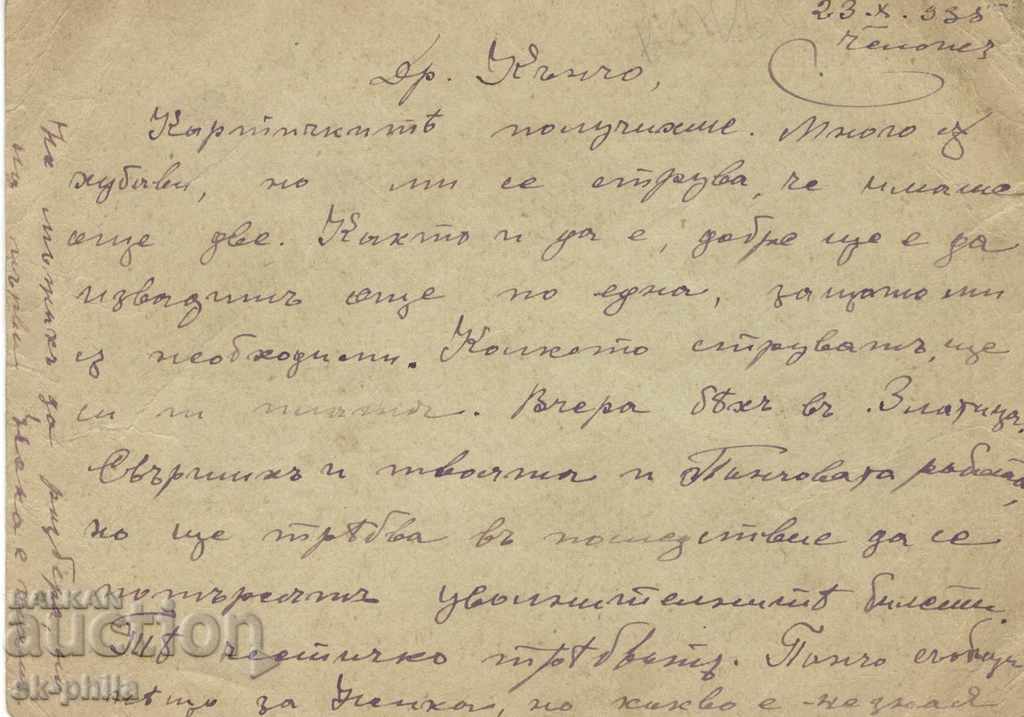 23.X.935
Челопеч
Др. Кънчо,
Картичкитѣ получихме. Много сѫ
хубави, но ми се струва, че имаше
още две. Както и да е, добре ще е да
извадишъ още по една, защото ми
сѫ необходими. Колкото струватъ, ще
си ги платя. Вчера бѣхъ въ Златица.
Свършихъ и твоята и Панчовата работа,
но ще трѣбва въ последствие да се
потърсятъ уволнителнитѣ билети.
Тѣ честичко трѣбватъ. Панчо съобщи
нѣщо за Ненка, но какво е незная
да разбера
BALKAN
auction
ek-phila